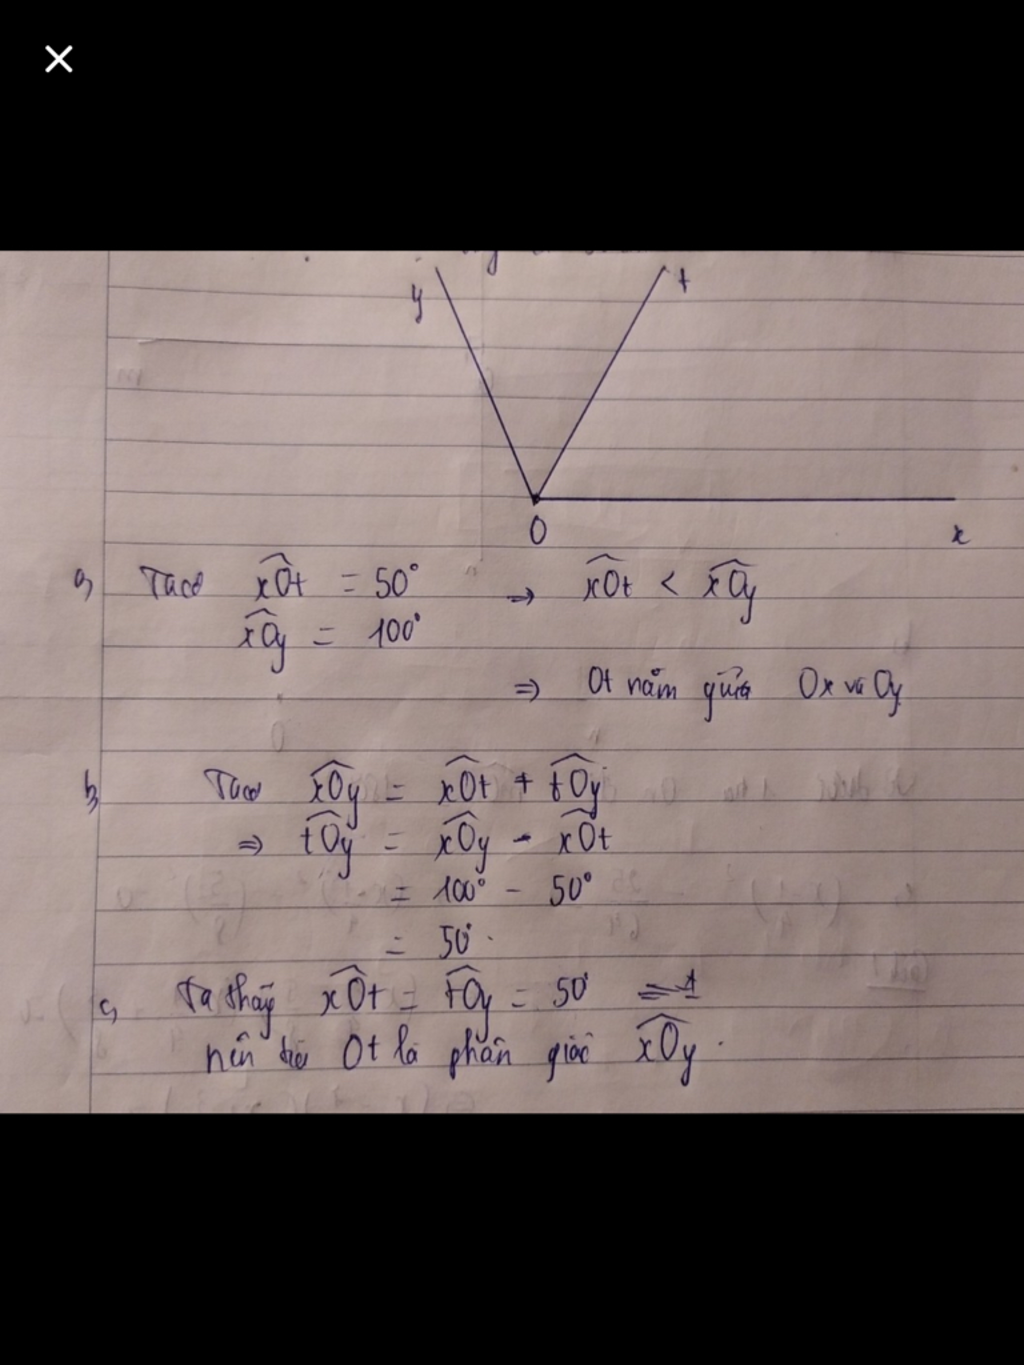 y
t
O
x
a, Ta có xOt = 50° => xOt < xOy
xOy = 100°
=> Ot nằm giữa Ox và Oy
b, Ta có xOy = xOt + tOy
=> tOy = xOy - xOt
= 100° - 50°
= 50°.
c, Ta thấy xOt = tOy = 50°
nên tia Ot là phân giác xOy.